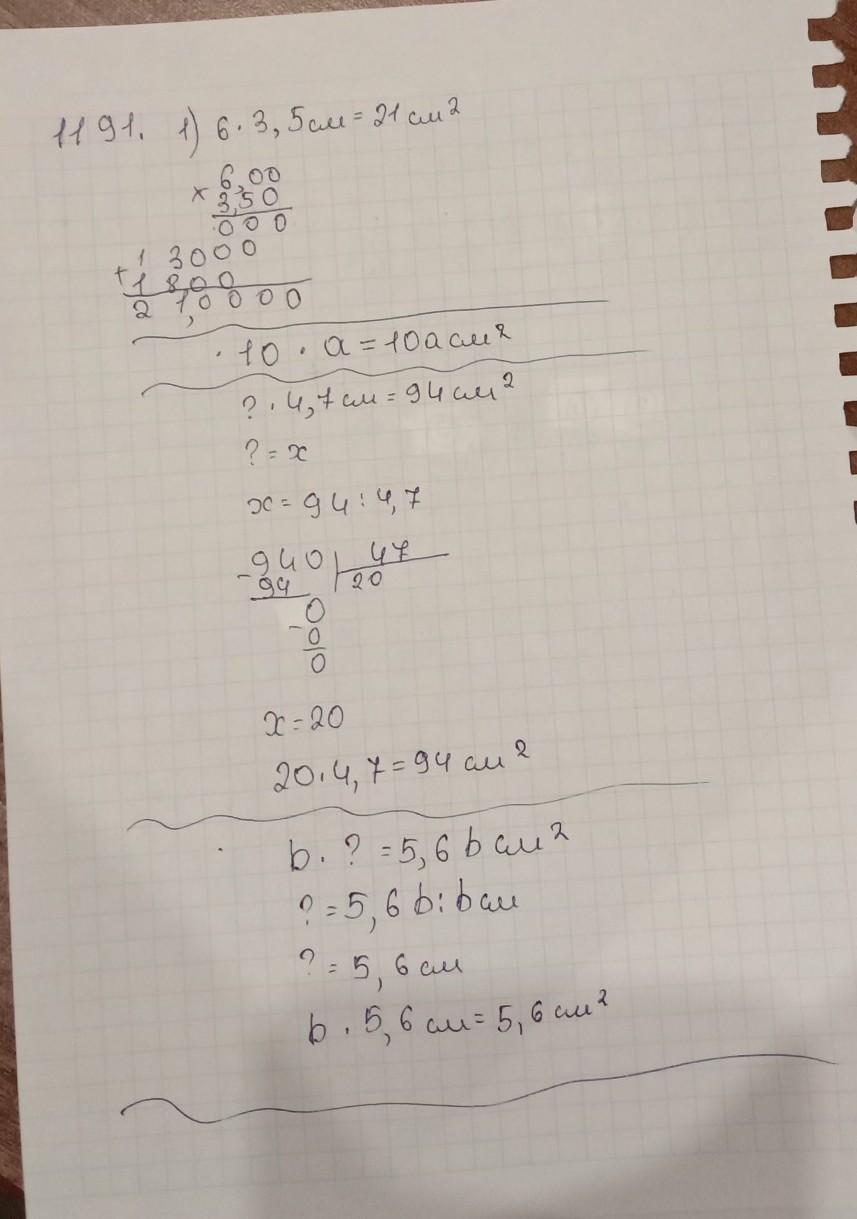 1191. 1) 6 · 3,5см = 21 см²
× 6,00
3,50
000
+ 1 3000
1 800
2 1,0000
· 10 · a = 10a см²
? · 4,7см = 94 см²
? = x
x = 94 : 4,7
- 940 | 47
94 | 20
0
- 0
0
x = 20
20 · 4,7 = 94 см²
b · ? = 5,6 b см²
? = 5,6 b : b см
? = 5,6 см
b · 5,6 см = 5,6 см²